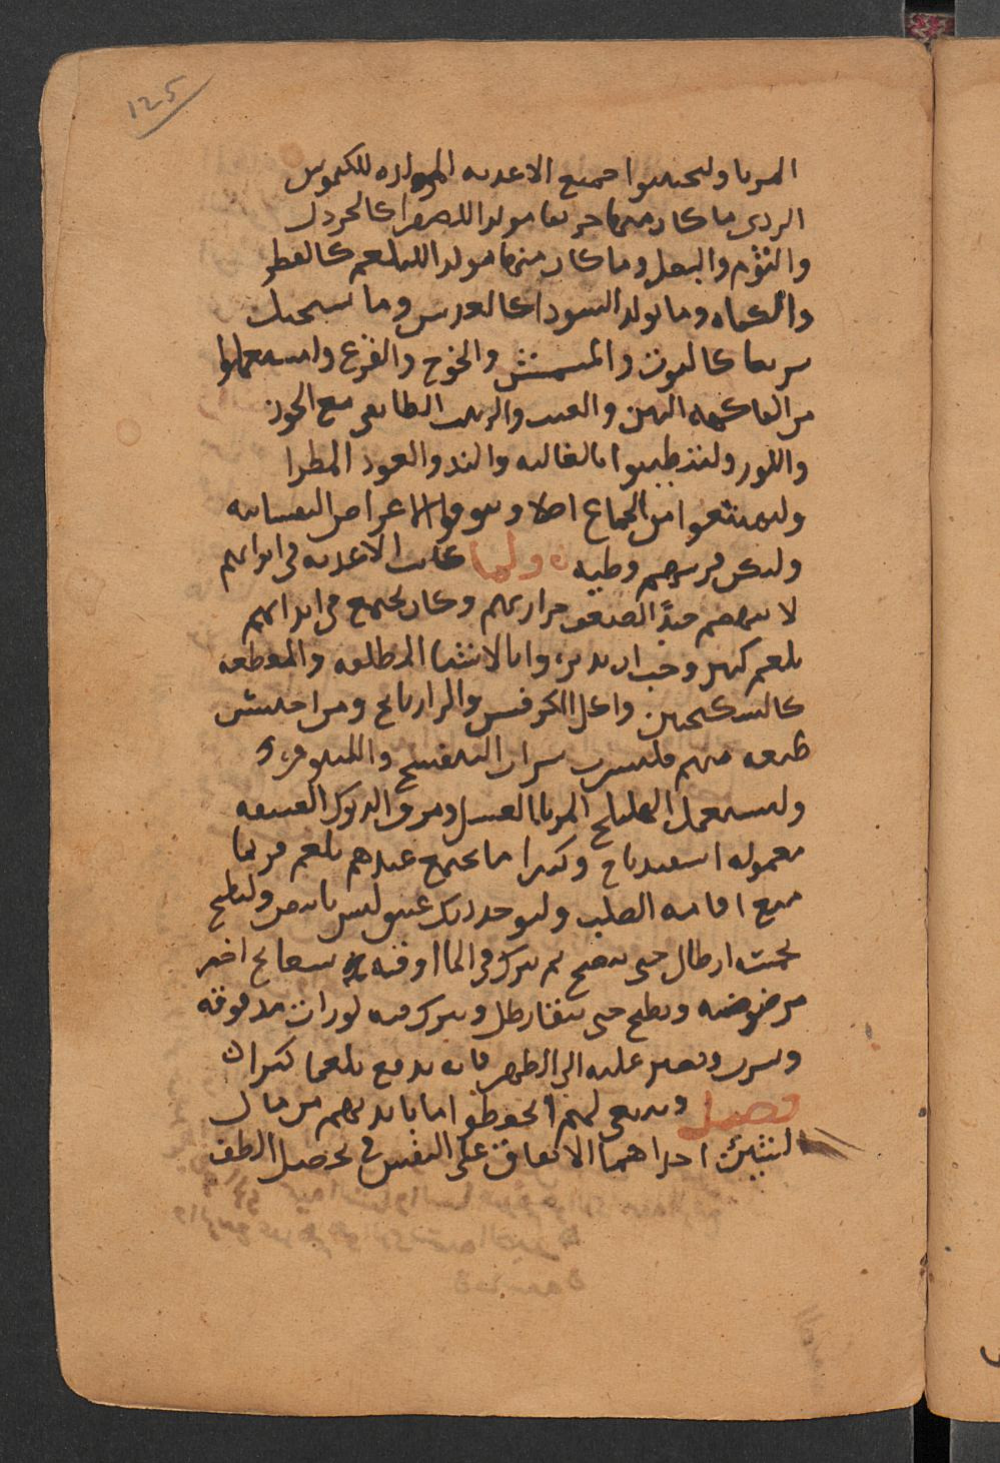 125
المربا وليجتنبوا جميع الاغذيه المولده للكيموس
الردى ما كان منها حريفا مولدا للصفرا كالخردل
والثوم والبصل وما كان منها مولدا للبلغم كالفطر
والكماه وما يولد السودا كالعدس وما يستحيل
سريعا كالتوت والمشمش والخوخ والقرع وليستعملوا
من الفاكهه التين والعنب والزبيب الطايفى مع الجوز
واللوز وليتطيبوا بالغاليه والند والعود المطرا
وليمتنعوا من الجماع اصلا ويتوقوا الاعراض النفسانيه
وليكن فرشهم وطيه ولما كانت الاغذيه فى ابدانهم
لا تنهضم جيدا لضعف حرارتهم وكان يجتمع فى ابدانهم
بلغم كثير وجب ان يدبروا بالاشيا الملطفه والمقطعه
كالسكنجبين واكل الكرفس والرازيانج ومن احتبس
طبعه منهم فليشرب شراب البنفسج واللينوفر
وليستعمل الهليلج المربا بالعسل ومرق الديوك العتيقه
معموله اسفيدباج وكثيرا ما يجتمع عندهم بلغم فربما
منع اقامه الصلب وليوخذ ديك عتيق وليطبخ
بخمسة ارطال حتى ينضج ثم يترك فى الما اوقيه بسفايج اخضر
مرضوضه ويطبخ حتى يبقا رطل ويترك فيه بورات مدقوقه
ويشرب ويصبر عليه الى الظهر فانه يدفع بلغما كثيرا
فصل وينبغى لهم ان يحفظوا ما بايديهم من مال
لشيئين احداهما الانفاق على النفس فى تحصيل الطف